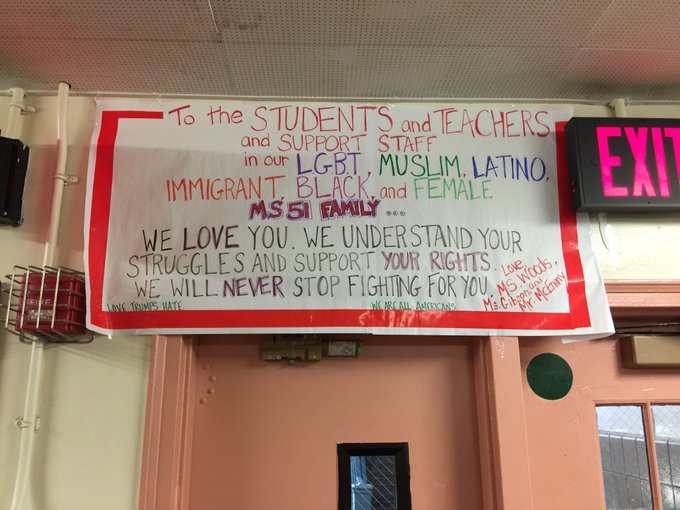 To the STUDENTS and TEACHERS
and SUPPORT STAFF
in our LGBT, MUSLIM, LATINO,
IMMIGRANT, BLACK, and FEMALE
MS 51 FAMILY ...
WE LOVE YOU. WE UNDERSTAND YOUR
STRUGGLES AND SUPPORT YOUR RIGHTS.
WE WILL NEVER STOP FIGHTING FOR YOU.
Love,
Ms. Woods,
Ms. Gibson, and
Mr. McEnany
LOVE TRUMPS HATE
WE ARE ALL AMERICANS
EXIT
FIRE